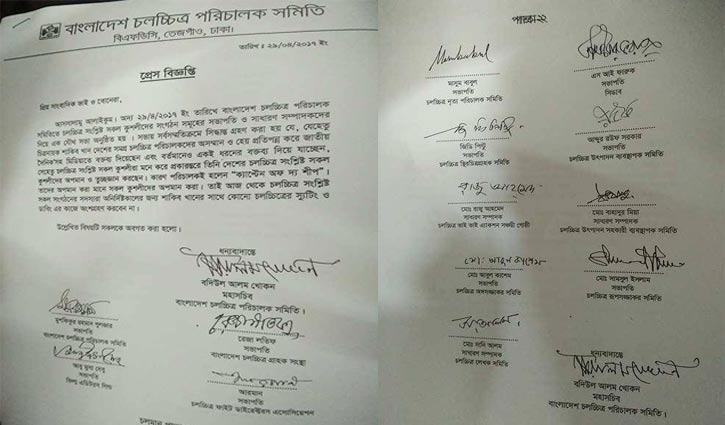 বাংলাদেশ চলচ্চিত্র পরিচালক সমিতি
বিএফডিসি, তেজগাঁও, ঢাকা।
তারিখ : ২৯/০৪/২০১৭ ইং
প্রেস বিজ্ঞপ্তি
প্রিয় সাংবাদিক ভাই ও বোনেরা,
আসসালামু আলাইকুম। অদ্য ২৯/৪/২০১৭ ইং তারিখে বাংলাদেশ চলচ্চিত্র পরিচালক
সমিতিতে চলচ্চিত্র সংশ্লিষ্ট সকল কুশলীদের সংগঠন সমূহের সভাপতি ও সাধারণ সম্পাদকদের
নিয়ে এক যৌথ সভা অনুষ্ঠিত হয়। সভায় সর্বসম্মতিক্রমে সিদ্ধান্ত গ্রহণ করা হয় যে, যেহেতু
চিত্রনায়ক শাকিব খান দেশের সমগ্র চলচ্চিত্র পরিচালকদের অসম্মান ও হেয় প্রতিপন্ন করে জাতীয়
দৈনিকসহ মিডিয়াতে বক্তব্য দিয়েছেন এবং বর্তমানেও একই ধরনের বক্তব্য দিয়ে যাচ্ছেন,
সেহেতু চলচ্চিত্র সংশ্লিষ্ট সকল কুশলীরা মনে করে প্রকারান্তরে তিনি দেশের চলচ্চিত্র সংশ্লিষ্ট সকল
কুশলীদের অপমান ও তুচ্ছজ্ঞান করছেন। কারণ পরিচালকই হলেন "ক্যাপ্টেন অফ দ্য শীপ"।
তাদের অপমান করা মানে সকল কুশলীদের অপমান করা। তাই আজ থেকে চলচ্চিত্র সংশ্লিষ্ট
সকল সংগঠনের সদস্যরা অনির্দিষ্টকালের জন্য শাকিব খানের সাথে কোনো চলচ্চিত্রের স্যুটিং ও
ডাবিং এর কাজে অংশগ্রহণ করবেন না।
উল্লেখিত বিষয়টি সকলকে অবগত করা হলো।
ধন্যবাদান্তে
বদিউল আলম খোকন
মহাসচিব
বাংলাদেশ চলচ্চিত্র পরিচালক সমিতি।
মুশফিকুর রহমান গুলজার
সভাপতি
বাংলাদেশ চলচ্চিত্র পরিচালক সমিতি
রেজা লতিফ
সভাপতি
বাংলাদেশ চলচ্চিত্র গ্রাহক সংস্থা
আবু মুসা দেবু
সভাপতি
ফিল্ম এডিটরস গিল্ড
আরমান
সভাপতি
চলচ্চিত্র ফাইট ডাইরেক্টরস এসোসিয়েশন
চলমান
মাসুম বাবুল
সভাপতি
চলচ্চিত্র নৃত্য পরিচালক সমিতি
এস আই ফারুক
সভাপতি
সিডাব
জিমি পিন্টু
সভাপতি
চলচ্চিত্র স্থিরচিত্রগ্রাহক সমিতি
আব্দুর রউফ সরকার
সভাপতি
চলচ্চিত্র উৎপাদন ব্যবস্থাপক সমিতি
রাজু আহমেদ
মোঃ রাজু আহমেদ
সাধারণ সম্পাদক
চলচ্চিত্র ভাই ভাই এ্যাকশন সমন্বয় গোষ্ঠী
মোঃ বাহাদুর মিয়া
সাধারণ সম্পাদক
চলচ্চিত্র উৎপাদন সহকারী ব্যবস্থাপক সমিতি
মোঃ আবুল কাশেম
মোঃ আবুল কাশেম
সভাপতি
চলচ্চিত্র অঙ্গসজ্জাকর সমিতি
মোঃ সামসুল ইসলাম
সভাপতি
চলচ্চিত্র রূপসজ্জাকর সমিতি
মোঃ সানি আলম
সাধারণ সম্পাদক
চলচ্চিত্র লেখক সমিতি
ধন্যবাদান্তে
বদিউল আলম খোকন
মহাসচিব
বাংলাদেশ চলচ্চিত্র পরিচালক সমিতি।